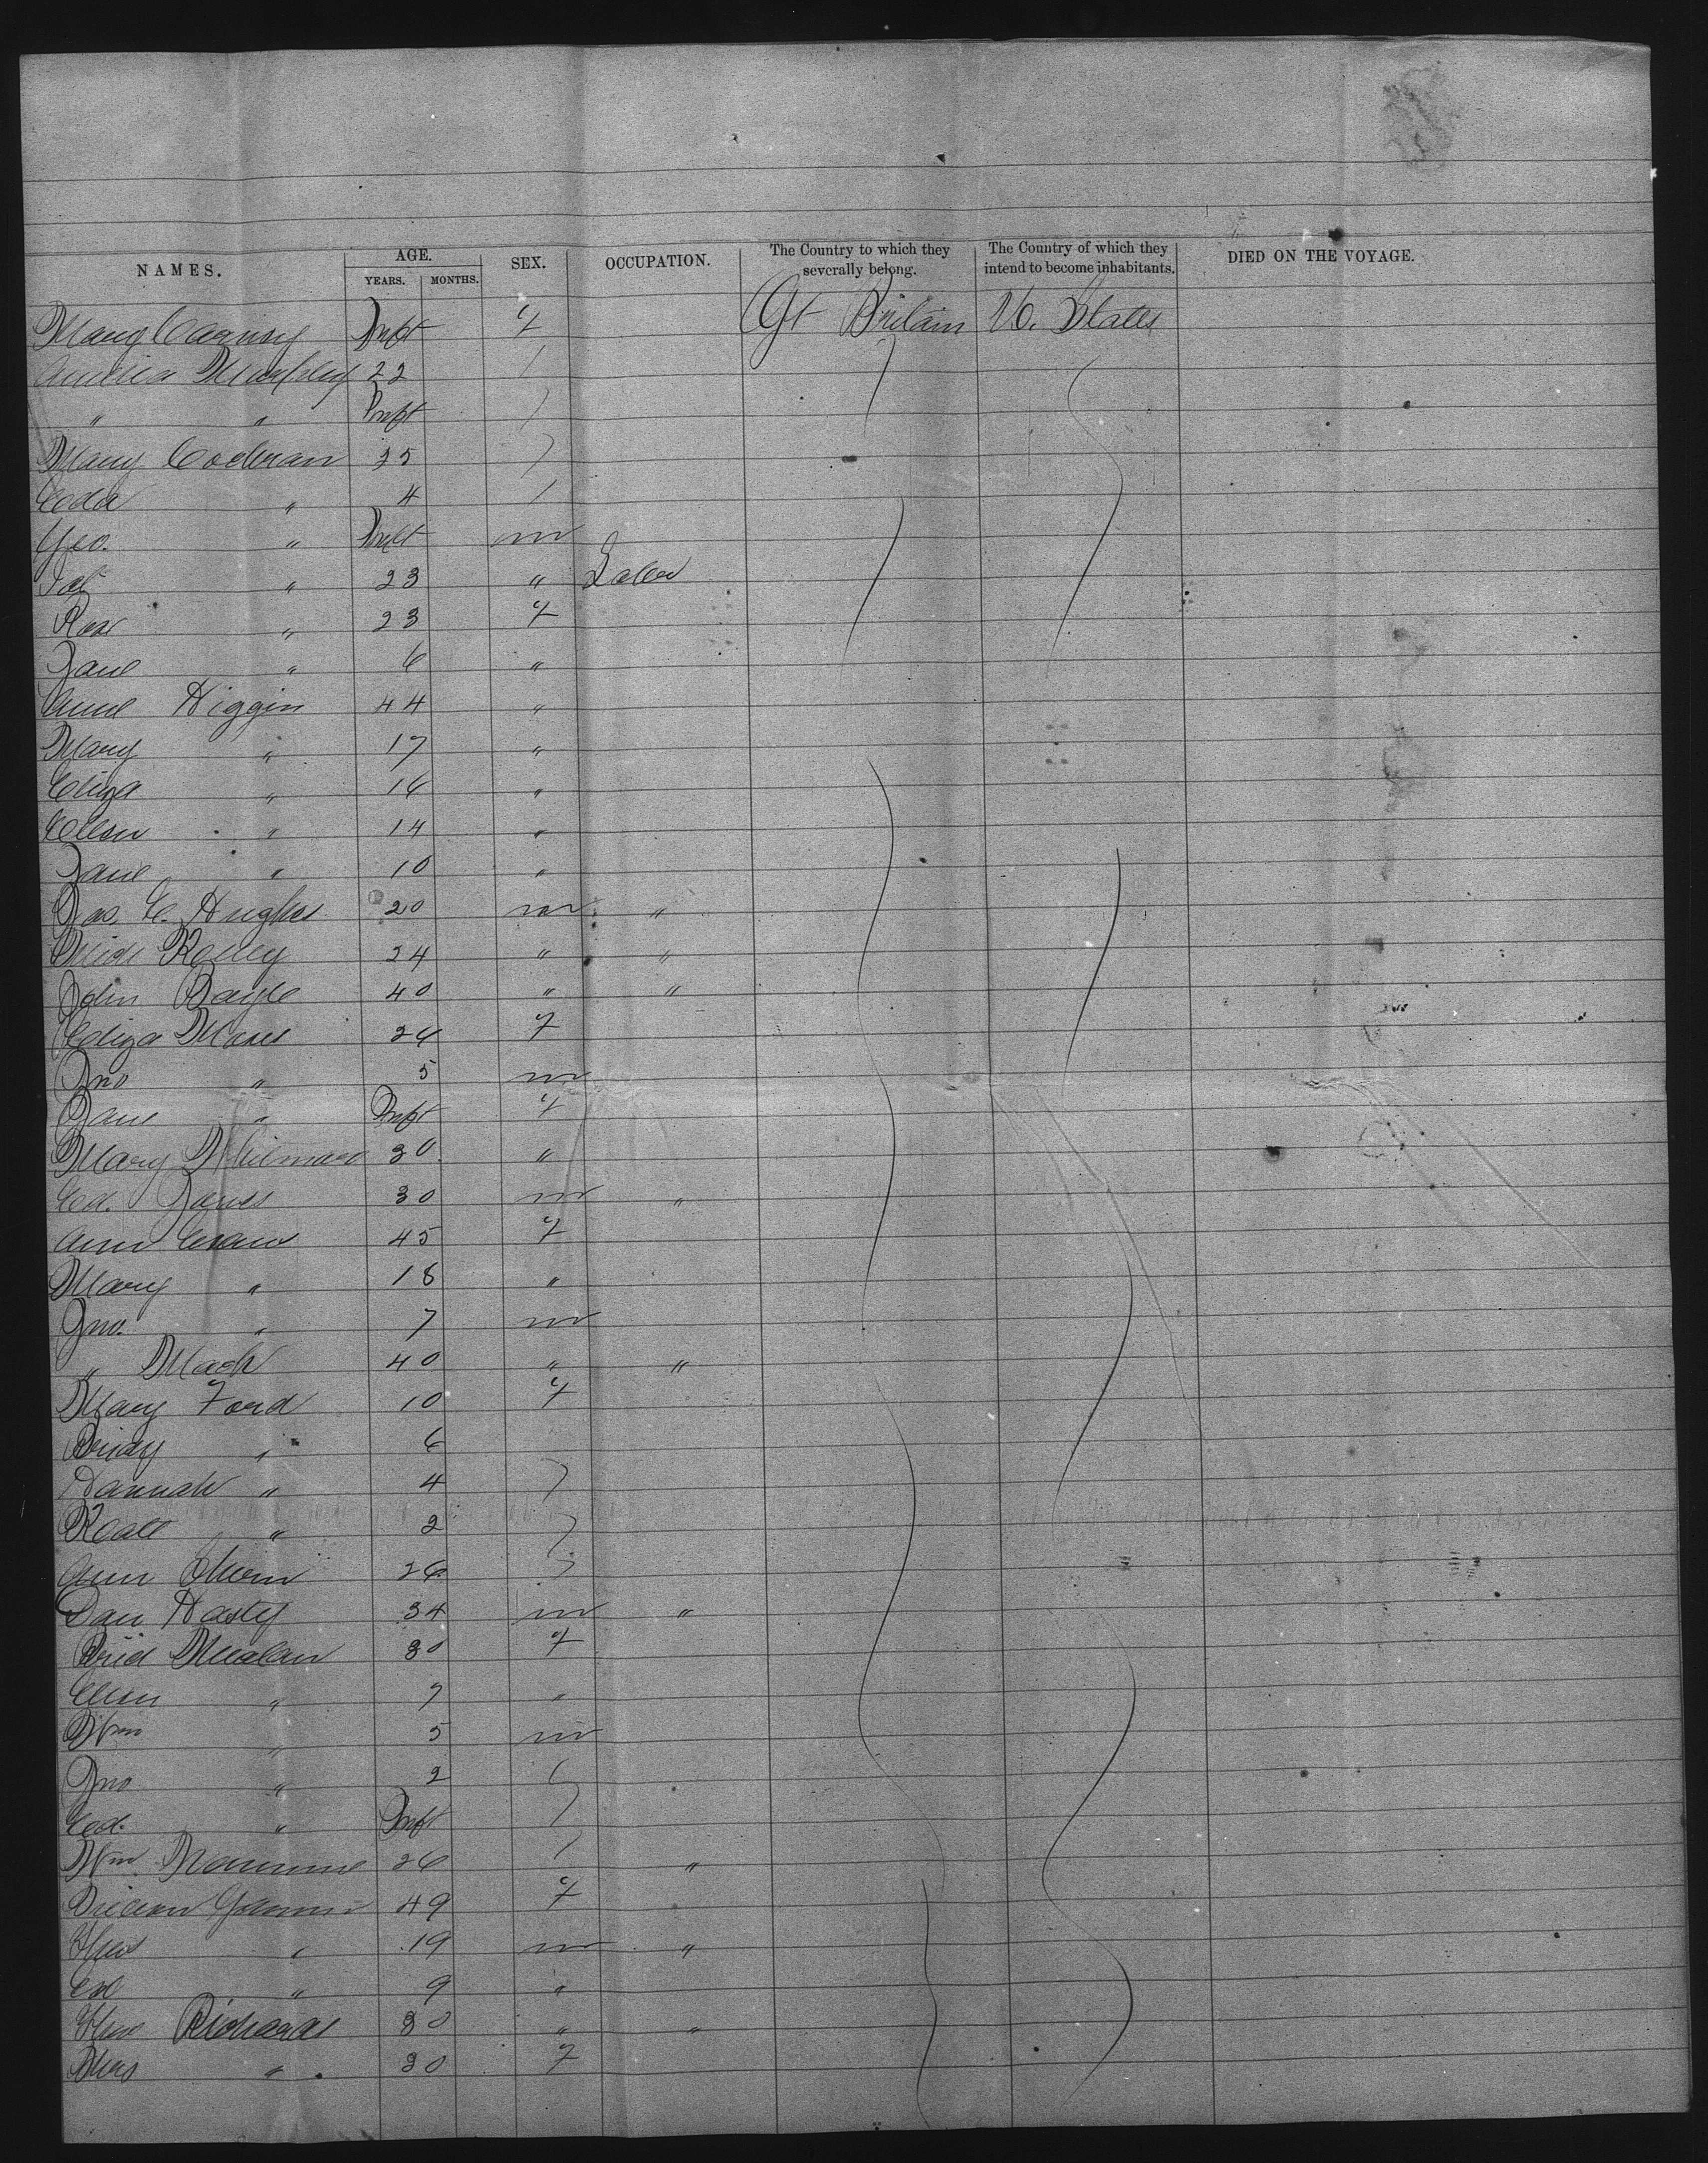 NAMES. AGE. YEARS. MONTHS. SEX. OCCUPATION. The Country to which they severally belong. The Country of which they intend to become inhabitants. DIED ON THE VOYAGE.
Mary Inft f Gt Britain U. States
Murphy 22
" " Inft
Mary Cochran 35
" 4
Geo. " Inft m
Pat " 23 " Labor
Rose " 23 f
Jane " 6 "
Anne Higgin 44 "
Mary " 17 "
Eliza " 16 "
Ellen " 14 "
Jane " 10 "
Jas. E. Hughes 20 m "
Kelley 24 " "
John Boyle 40 " "
Eliza 26 f
Jno " 5 m
Jane " Inft f
Mary 30 "
Ed. 30 m "
Ann Evans 45 f
Mary " 18 "
Jno. " 7 m
" Mack 40 " "
Mary Ford 10 f
Bridy " 6
Hannah " 4
Kate " 2
Ann 26
Dan Hasty 34 m "
Brid 30 f
Ellen " 7 "
Wm " 5 m
Jno " 2
Ed. " Inft
Wm. 26 "
49 f
" 19 m "
Ed " 9 "
Richards 30 " "
" 30 f